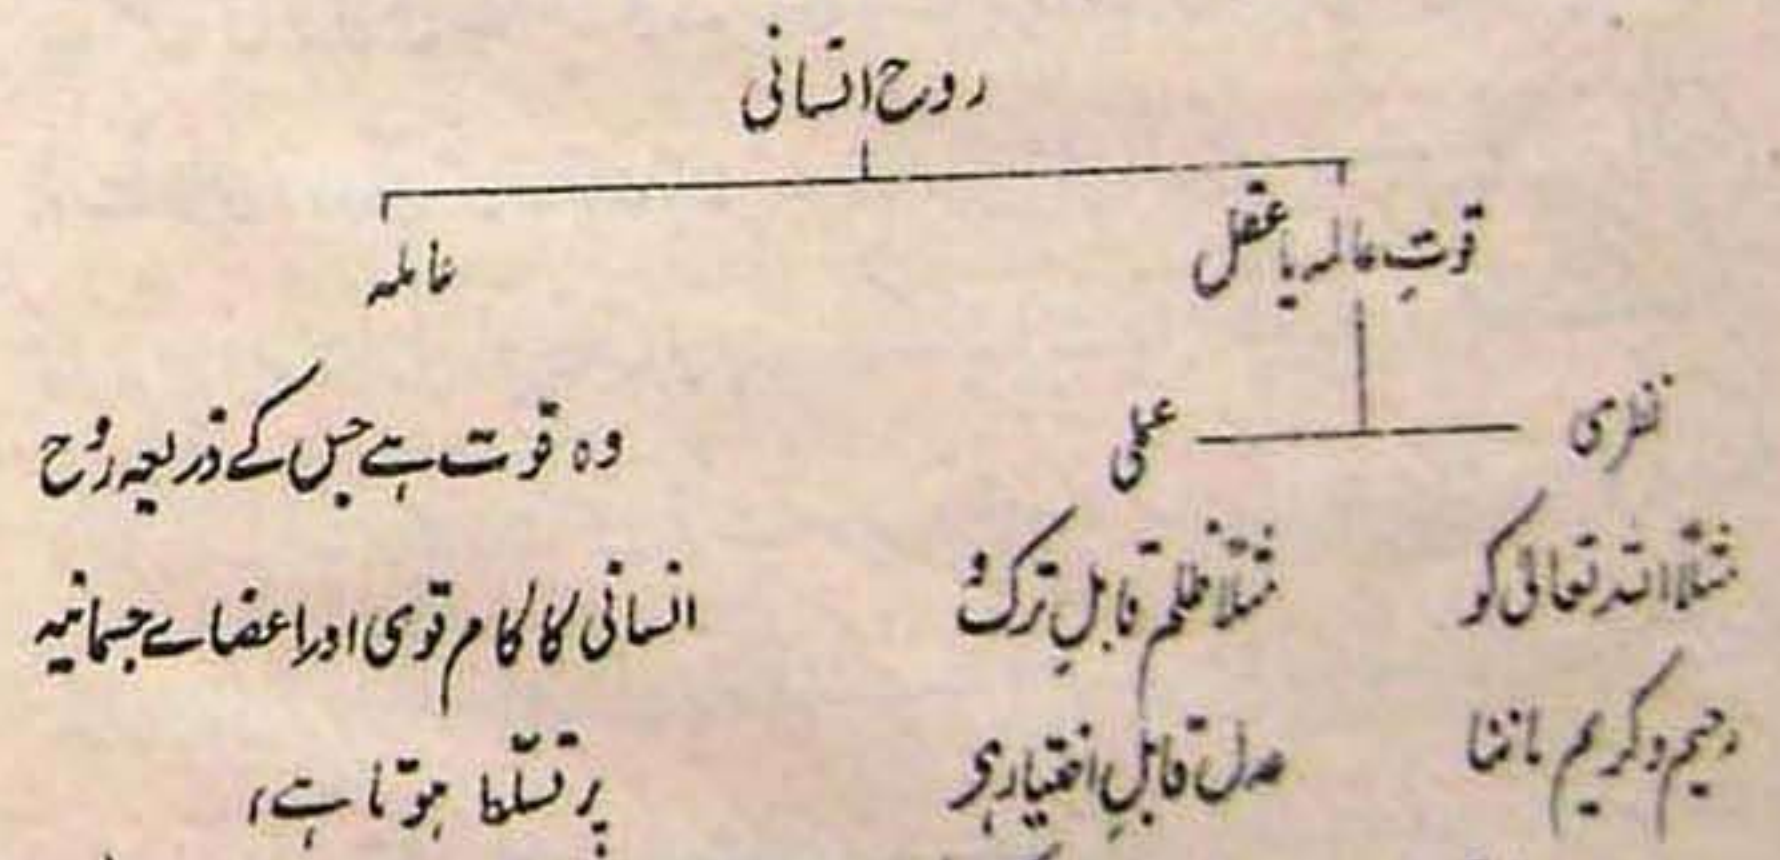 روح انسانی
قوتِ عالمہ یا عقل
عاملہ
نظری
عملی
مثلاً اللہ تعالیٰ کو
رحیم و کریم ماننا
مثلاً ظلم قابلِ ترک و
عدل قابلِ اختیار ہی
وہ قوت ہے جس کے ذریعہ رُوح
انسانی کا کام قوی اور اعضاے جسمانیہ
پر تسلّط ہوتا ہے،